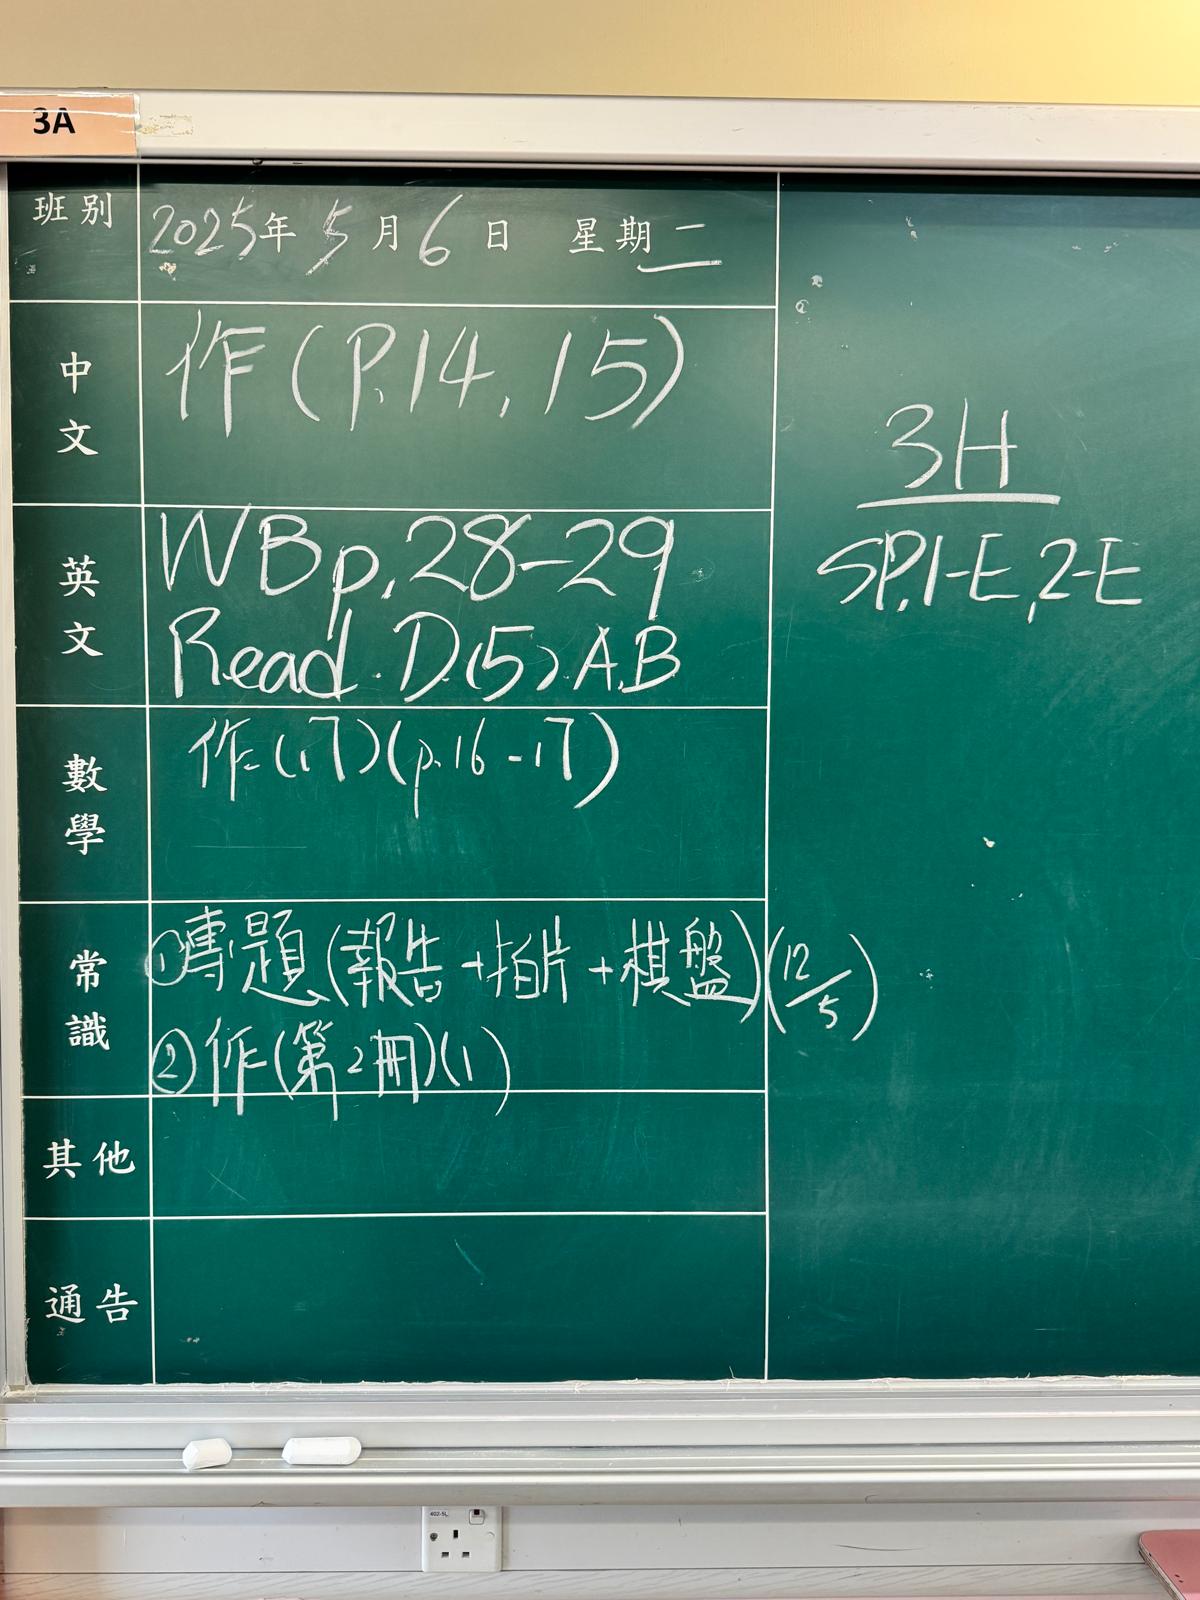 3A
班別 2025年 5月 6日 星期二
中文 作(P.14, 15)
英文 WB p.28-29
Read. D.(5) A,B
數學 作(17)(p.16-17)
常識 ①專題(報告+拍片+棋盤)(12/5)
②作(第2冊)(1)
其他
通告
3H
SP.1-E,2-E